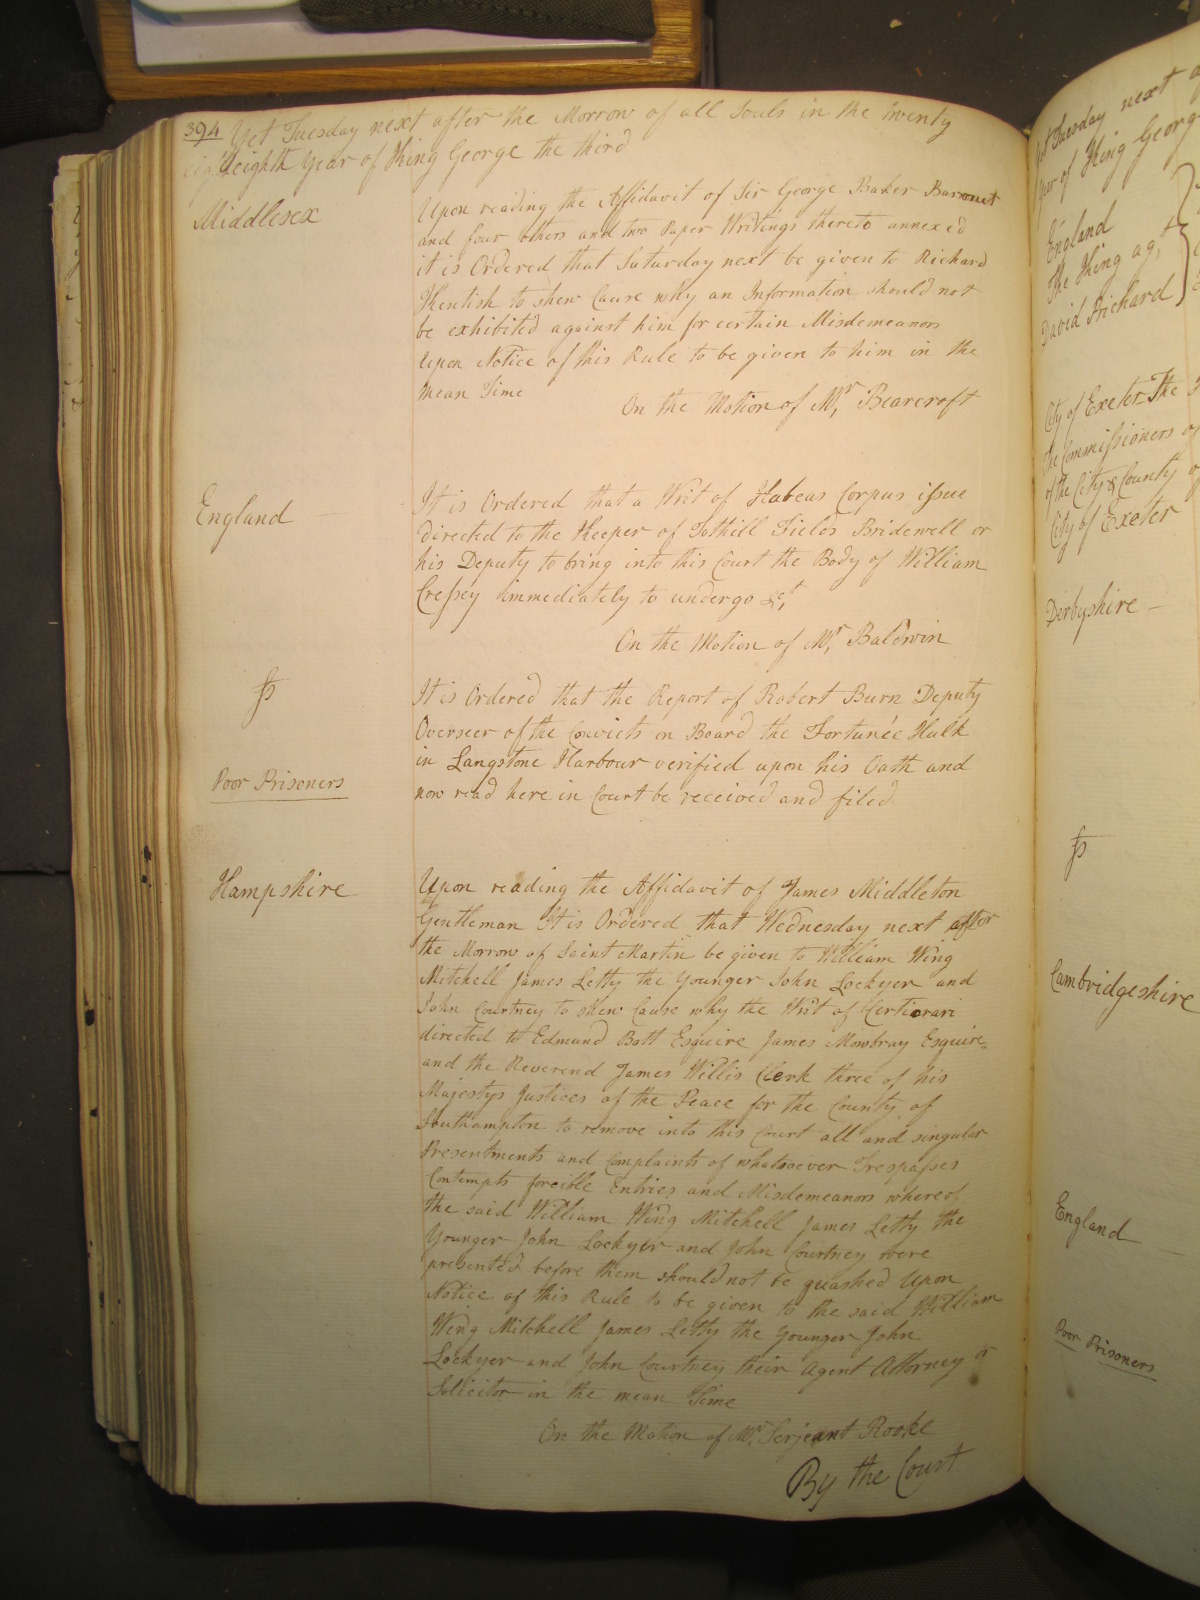 394 Yet Tuesday next after the Morrow of all Souls in the twenty
eighth Year of King George the third
Middlesex
Upon reading the Affidavit of Sir George Baker Baronet
and four others and two Paper Writings thereto annexed
it is Ordered that Saturday next be given to Richard
Kentish to shew Cause why an Information should not
be exhibited against him for certain Misdemeanors
Upon Notice of this Rule to be given to him in the
mean Time
On the Motion of Mr. Bearcroft
England
It is Ordered that a Writ of Habeas Corpus issue
directed to the Keeper of Tothill Fields Bridewell or
his Deputy to bring into this Court the Body of William
Cressey immediately to undergo &ct,
On the Motion of Mr. Baldwin
ss
It is Ordered that the Report of Robert Burn Deputy
Overseer of the Convicts on Board the Fortunée Hulk
in Langstone Harbour verified upon his Oath and
now read here in Court be received and filed
Poor Prisoners
Hampshire
Upon reading the Affidavit of James Middleton
Gentleman It is Ordered that Wednesday next after
the Morrow of Saint Martin be given to William Wing
Mitchell James Letty the Younger John Lockyer and
John Courtney to shew Cause why the Writ of Certiorari
directed to Edmund Bott Esquire James Mowbray Esquire
and the Reverend James Willis Clerk three of his
Majestys Justices of the Peace for the County of
Southampton to remove into this Court all and singular
Presentments and Complaints of whatsoever Trespasses
Contempts forcible Entries and Misdemeanors whereof
the said William Wing Mitchell James Letty the
Younger John Lockyer and John Courtney were
presented before them should not be quashed Upon
Notice of this Rule to be given to the said William
Wing Mitchell James Letty the Younger John
Lockyer and John Courtney their Agent Attorney or
Sollicitor in the mean Time
On the Motion of Mr. Serjeant Rooke
By the Court
Yet Tuesday next
Year of King George
England
The King agt,
David Prichard
City of Exeter The
the Commissioners of
of the City & County of
City of Exeter
Derbyshire
ss
Cambridgeshire
England
Poor Prisoners